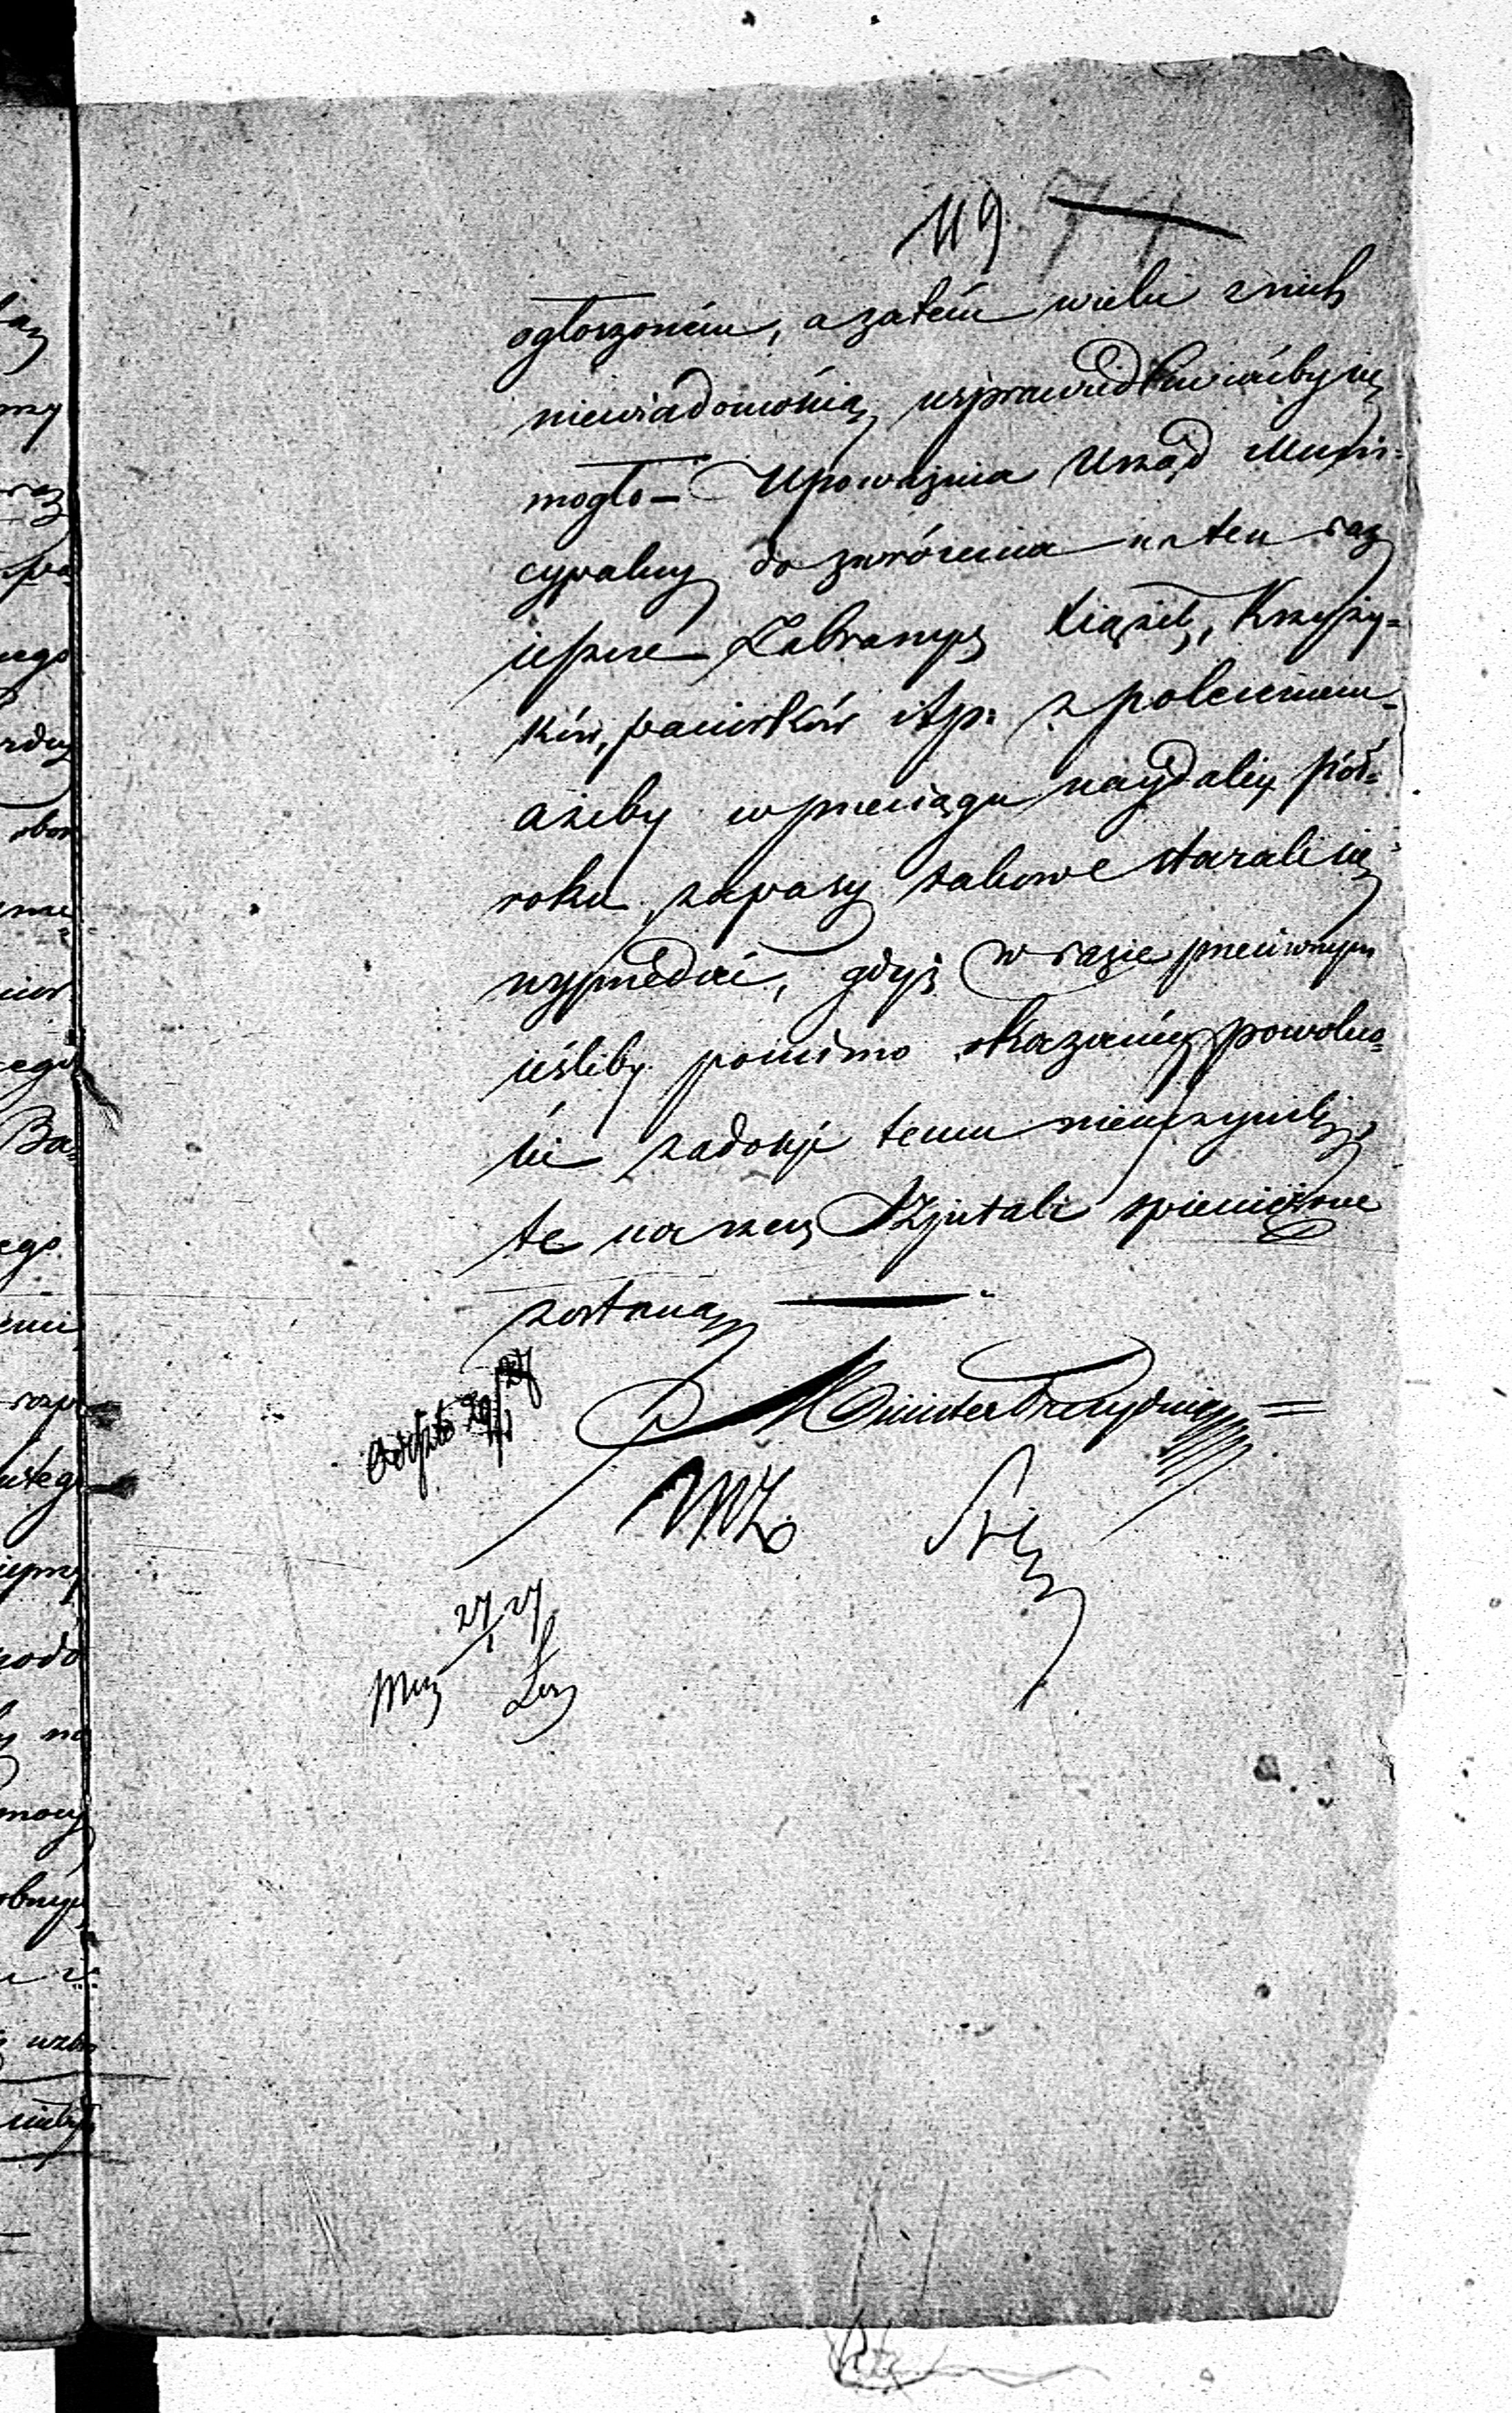 119. 71
ogłoszonem, a zatem wielu z nich
niewiadomością usprawiedliwiaćby się
mogło — Upoważnia Urząd Muni-
cypalny do zwrócenia na ten raz
ieszcze Zabranych Xiążek, Krzyży-
ków, paciorków itp: z poleceniem
ażeby w przeciągu naydaley pół-
roku zapasy takowe starali się
wyprzedać, gdyż w razie przeciwnym
ieśliby pomimo okazaney powolno-
ści zadosyć temu nieuczynili,
te na rzecz Szpitali spieniężone
zostaną
Minister Prezyduiący
27/1 27